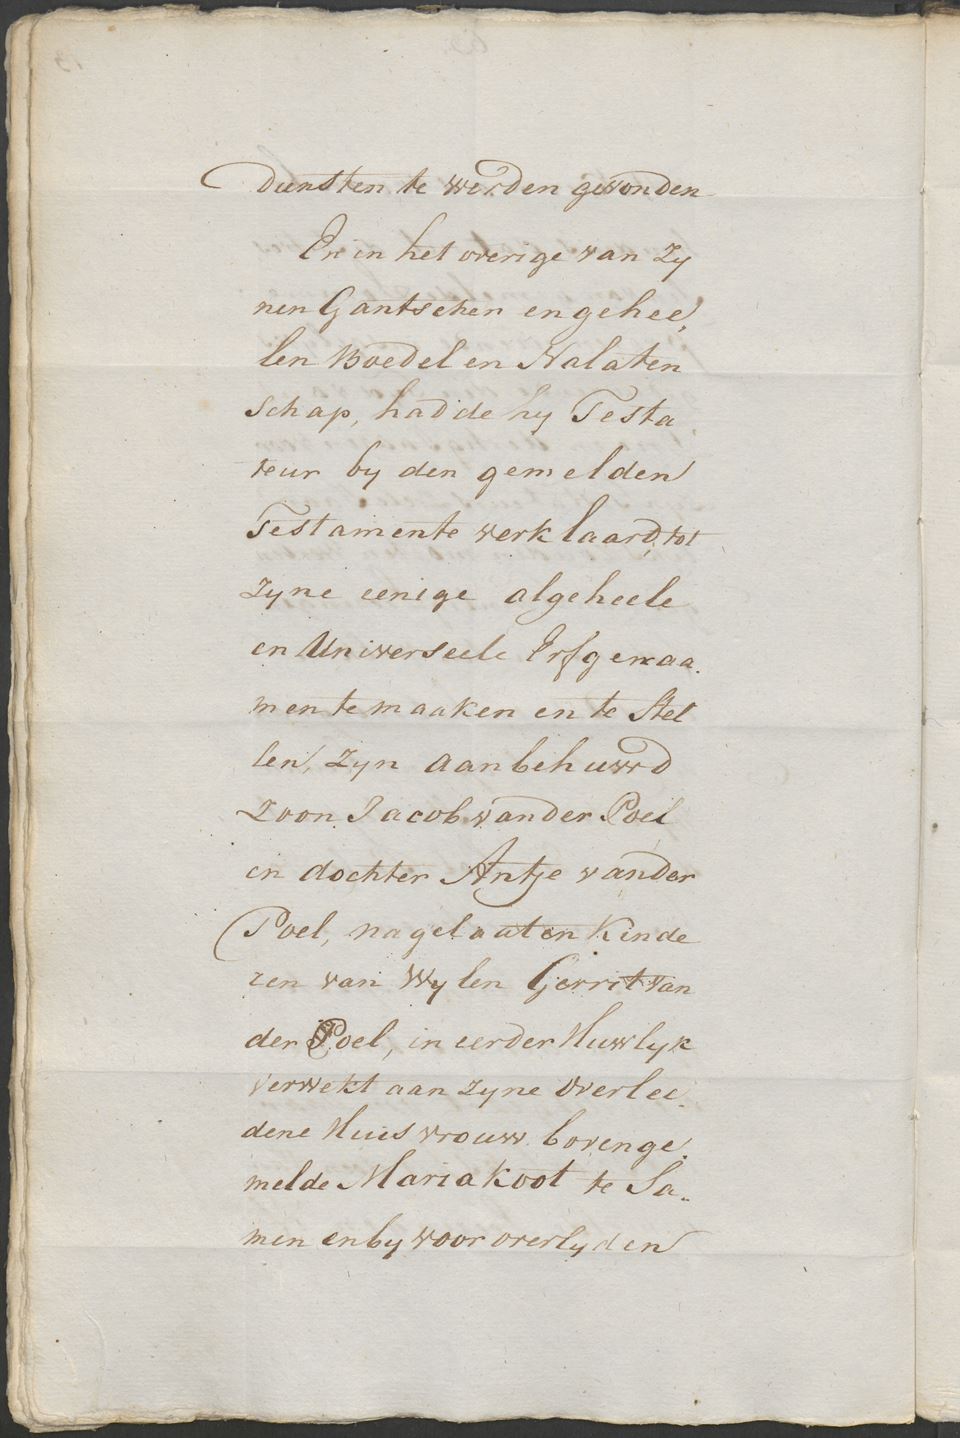 diensten te werden gevonden
En in het overige van zy
nen Gantschen en gehee,
len Boedel en Nalaten
schap, hadde hy Testa
teur by den gemelden
Testamente verklaard, tot
zyne eenige algeheele
en Universeele Erfgenaa.
men te maaken en te stel
len, zyn aanbehuwd
Zoon Jacob van der Poel
en dochter Antje van der
Poel, nagelaaten Kinde
ren van Wylen Gerrit van
der Poel, in eerder Huwlyk
verwekt aan zyne Overlee.
dene Huisvrouw bovenge.
melde Maria Koot te Sa..
men en by voor overlyden